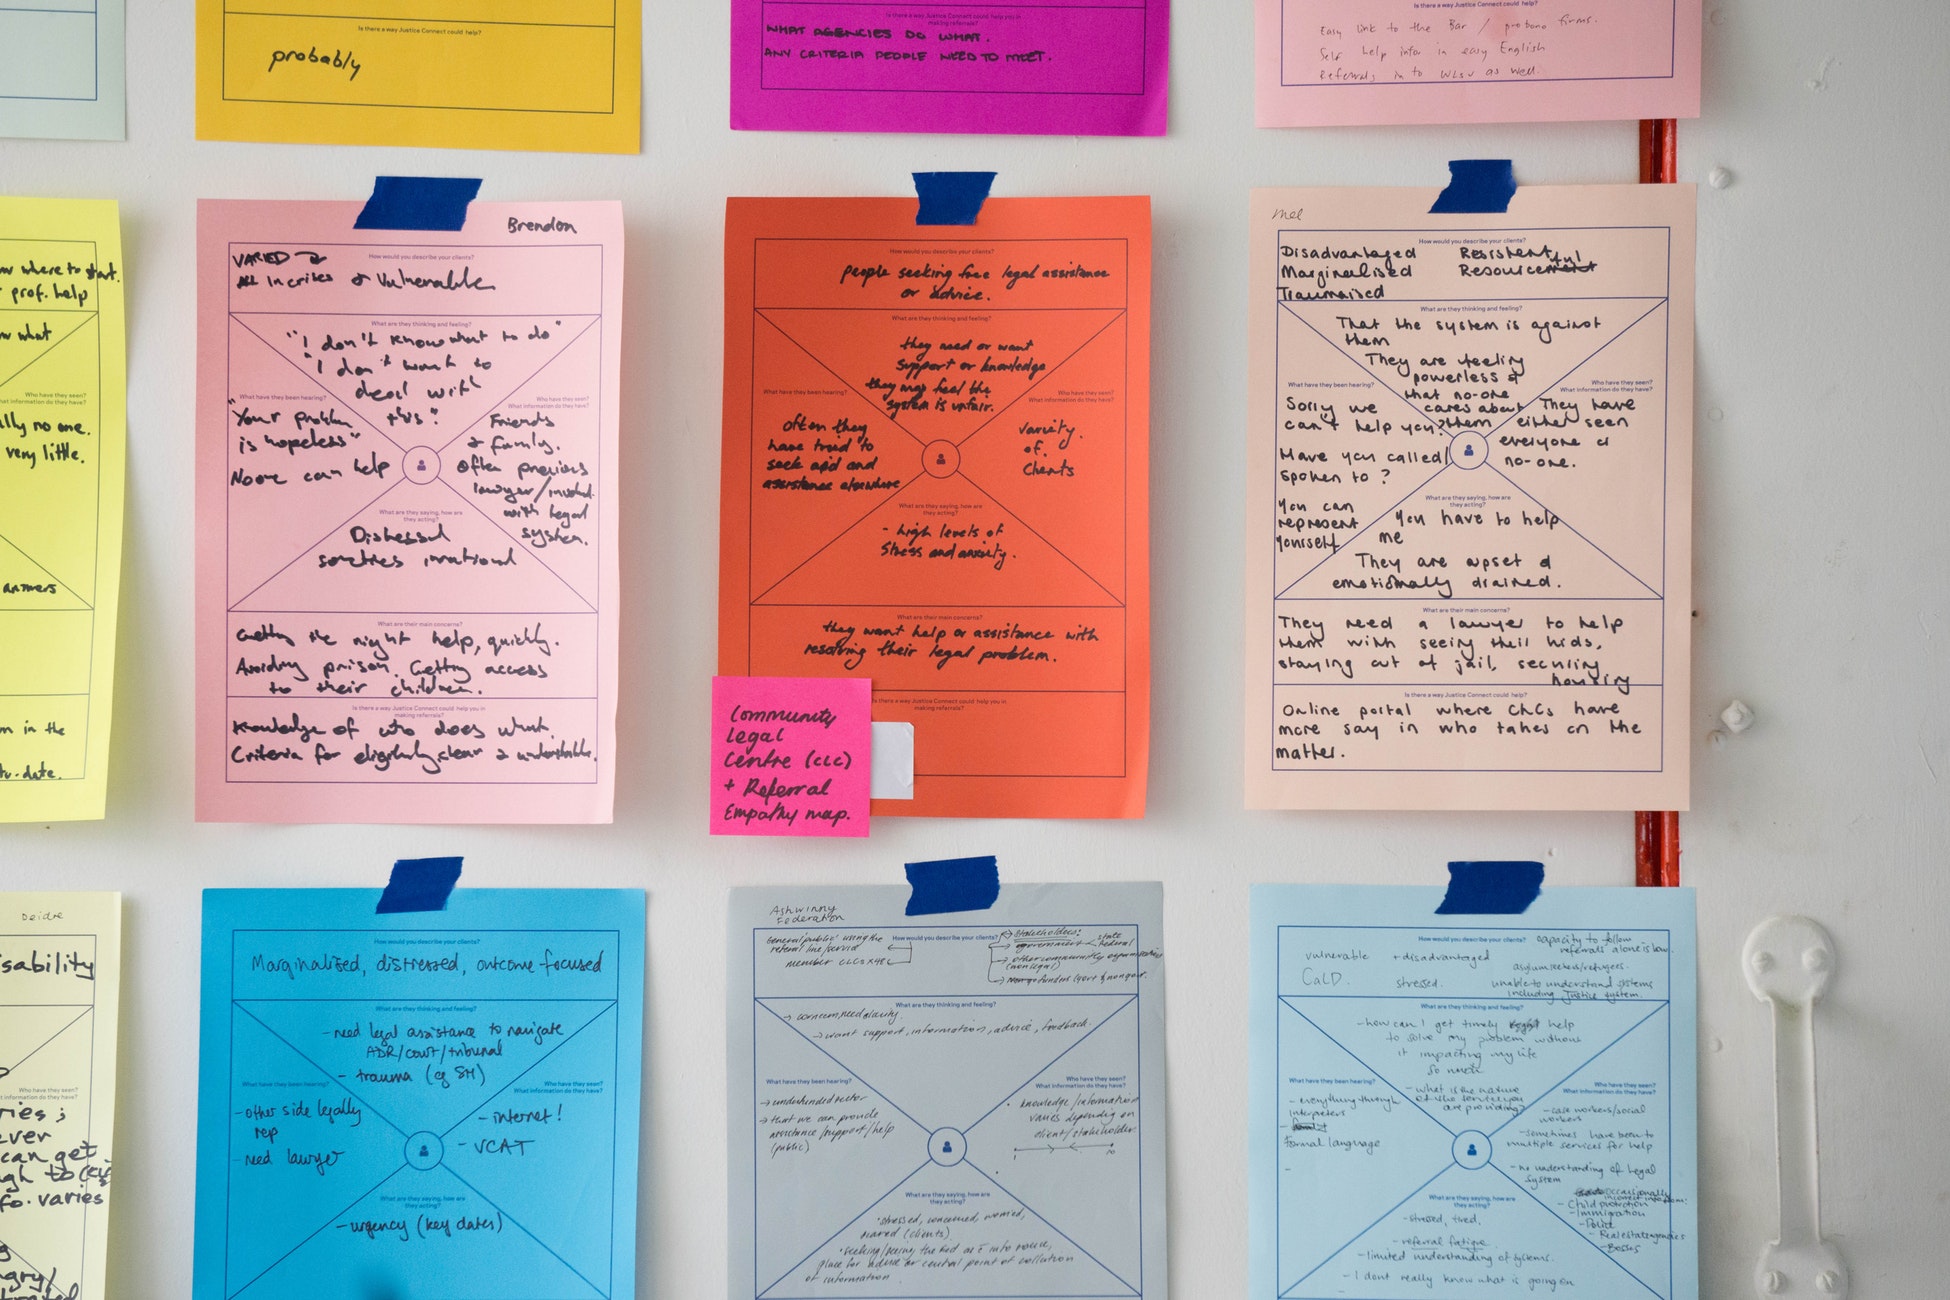 Is there a way Justice Connect could help?
probably
Is there a way Justice Connect could help you in
making referrals?
WHAT AGENCIES DO WHAT.
ANY CRITERIA PEOPLE NEED TO MEET.
Is there a way Justice Connect could help?
Easy link to the Bar / probono firms.
Self help info in easy English
Referrals in to WLSV as well.
where to start.
prof. help
what
no one.
very little.
answers
in the
date.
Brendon
How would you describe your clients?
VARIED
All in crises & Vulnerable
What are they thinking and feeling?
"I don't know what to do"
"I don't want to
deal with
this."
What have they been hearing?
"Your problem
is hopeless"
No one can help
Who have they seen?
What information do they have?
Friends
& family.
Often previous
lawyer/involved
with legal
system.
What are they saying, how are
they acting?
Distressed
sometimes irrational
What are their main concerns?
Getting the right help, quickly.
Avoiding prison. Getting access
to their children.
Is there a way Justice Connect could help you in
making referrals?
Knowledge of who does what.
Criteria for eligibility clear & understandable.
How would you describe your clients?
people seeking free legal assistance
or advice.
What are they thinking and feeling?
they need or want
support or knowledge
they may feel the
system is unfair.
What have they been hearing?
often they
have tried to
seek aid and
assistance elsewhere
Who have they seen?
What information do they have?
variety
of
clients
What are they saying, how are
they acting?
- high levels of
stress and anxiety.
What are their main concerns?
they want help or assistance with
resolving their legal problem.
Is there a way Justice Connect could help you in
making referrals?
Community
Legal
Centre (CLC)
+ Referral
Empathy map.
Mel
How would you describe your clients?
Disadvantaged Resistent
Marginalised Resourceful
Traumatised
What are they thinking and feeling?
That the system is against
them
They are feeling
powerless &
that no-one
cares about
them
What have they been hearing?
Sorry we
can't help you?
Have you called/
spoken to?
You can
represent
yourself
Who have they seen?
What information do they have?
They have
either seen
everyone or
no-one.
What are they saying, how are
they acting?
You have to help
me
They are upset &
emotionally drained.
What are their main concerns?
They need a lawyer to help
them with seeing their kids,
staying out of jail, securing
housing
Is there a way Justice Connect could help?
Online portal where CLCs have
more say in who takes on the
matter.
Deidre
can get
varies
How would you describe your clients?
Marginalised, distressed, outcome focused
What are they thinking and feeling?
- need legal assistance to navigate
ADR/court/tribunal
- trauma (eg SH)
What have they been hearing?
- other side legally
rep
- need lawyer
Who have they seen?
What information do they have?
- internet!
- VCAT
What are they saying, how are
they acting?
- urgency (key dates)
Ashwinny
Federation
How would you describe your clients?
General 'public' using the
referral line/service
member CLCs x48
Stakeholders:
government
state
federal
other community organisations
(non legal)
What are they thinking and feeling?
→ concern, need clarity.
→ want support, information, advice, feedback.
What have they been hearing?
→ underfunded sector
→ that we can provide
assistance/support/help
(public)
Who have they seen?
What information do they have?
knowledge/information
varies depending on
client/stakeholder.
1 10
What are they saying, how are
they acting?
• stressed, concerned, worried,
scared (clients)
place for advice or central point of collation
of information
How would you describe your clients?
vulnerable + disadvantaged
CaLD. stressed.
capacity to follow
referrals alone is low.
asylum seekers/refugees.
unable to understand systems
including Justice system.
What are they thinking and feeling?
- how can I get timely help
to solve my problem without
it impacting my life
so much
- what is the nature
of the service you
are providing?
What have they been hearing?
- everything through
interpreters
formal language
Who have they seen?
What information do they have?
- case workers/social
workers
- sometimes have been to
multiple services for help
- no understanding of legal
system
occasionally
incorrect info from:
- Child protection
- Immigration
- Police
- Real estate agencies
- Bosses
What are they saying, how are
they acting?
- stressed, tired.
- referral fatigue.
- limited understanding of systems.
- I dont really know what is going on